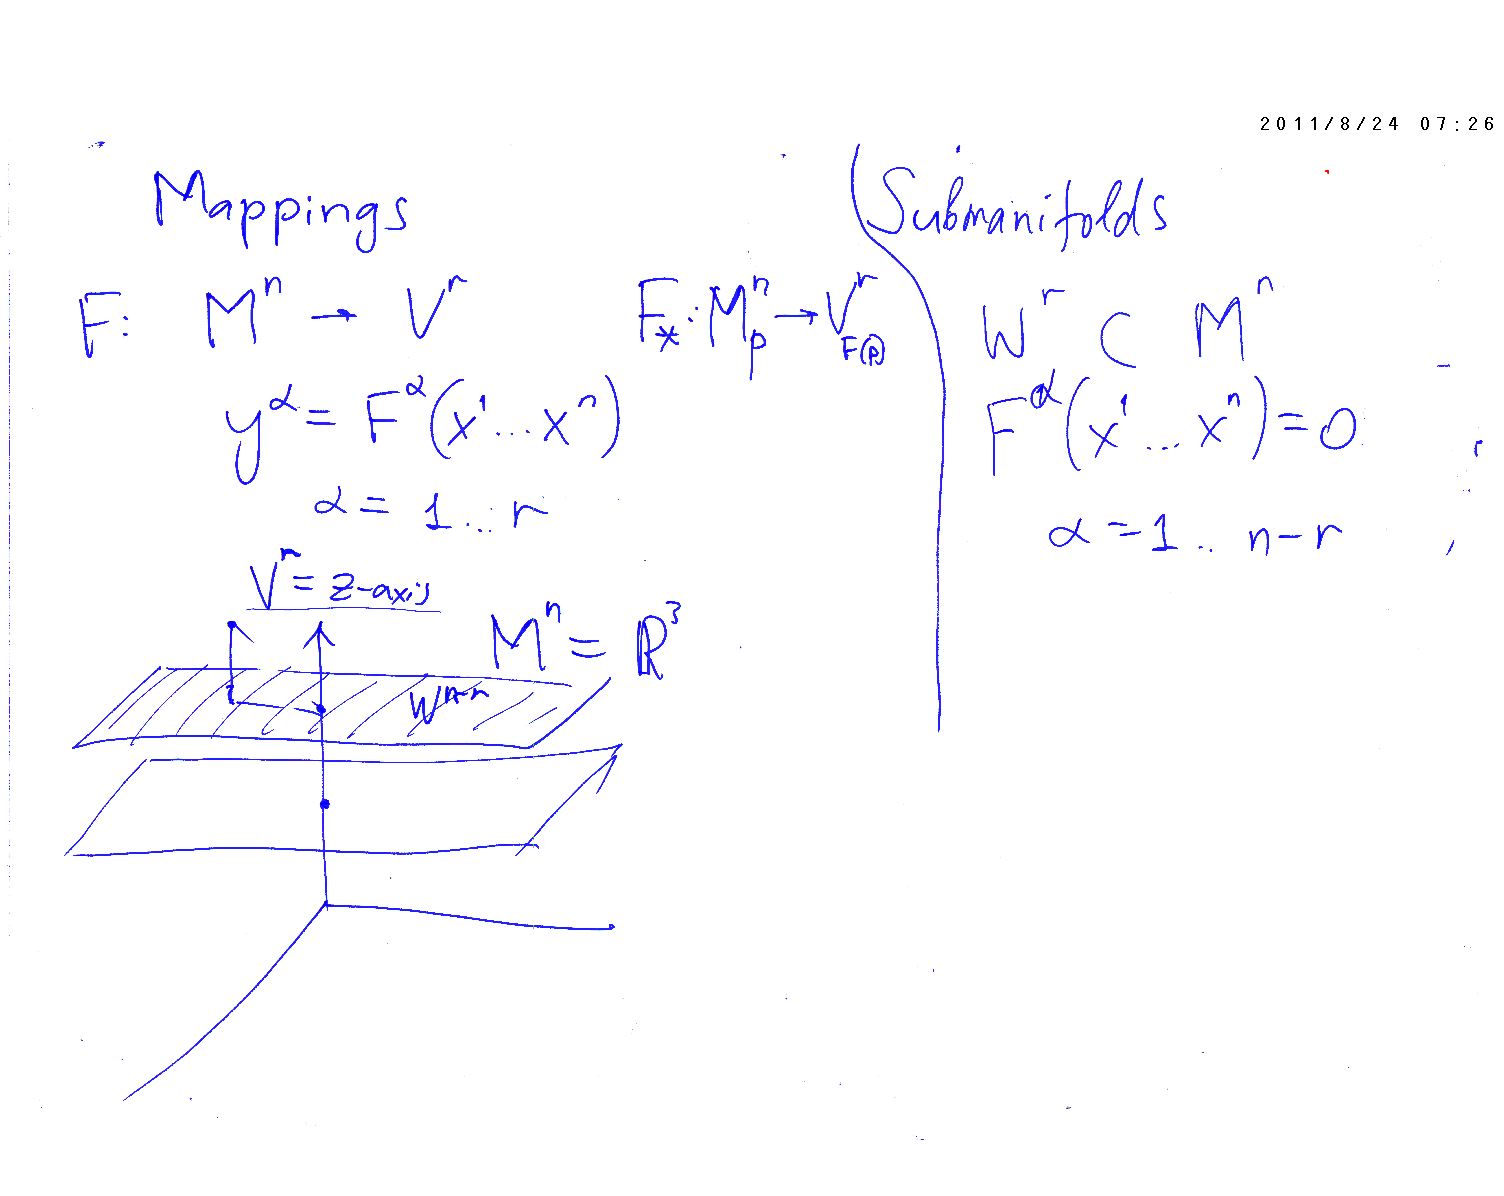 2011/8/24 07:26
Mappings
F: Mⁿ → Vʳ F_*: Mⁿ_p → Vʳ_F(p)
y^α = F^α(x¹...xⁿ)
α = 1...r
Vʳ = z-axis
Mⁿ = ℝ³
Wⁿ⁻ʳ
Submanifolds
Wʳ ⊂ Mⁿ
F^α(x¹...xⁿ) = 0
α = 1.. n-r